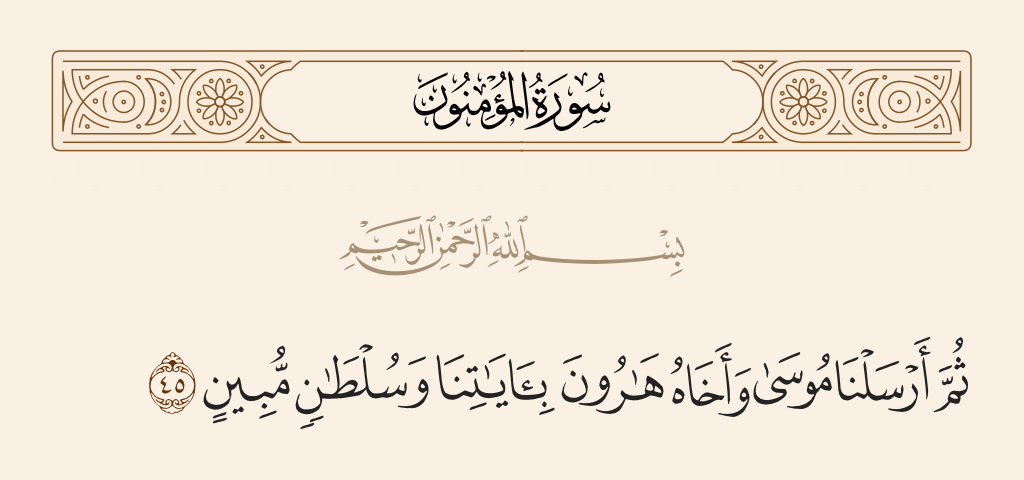 سُورَةُ المُؤْمِنُونَ
بِسْمِ ٱللَّهِ ٱلرَّحْمَٰنِ ٱلرَّحِيمِ
ثُمَّ أَرْسَلْنَا مُوسَىٰ وَأَخَاهُ هَٰرُونَ بِـَٔايَٰتِنَا وَسُلْطَٰنٍ مُّبِينٍ ٤٥